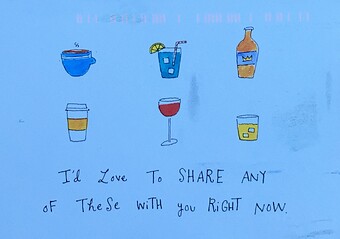 I'd Love To SHARE ANY
OF TheSe WITH you RIGHT NOW.